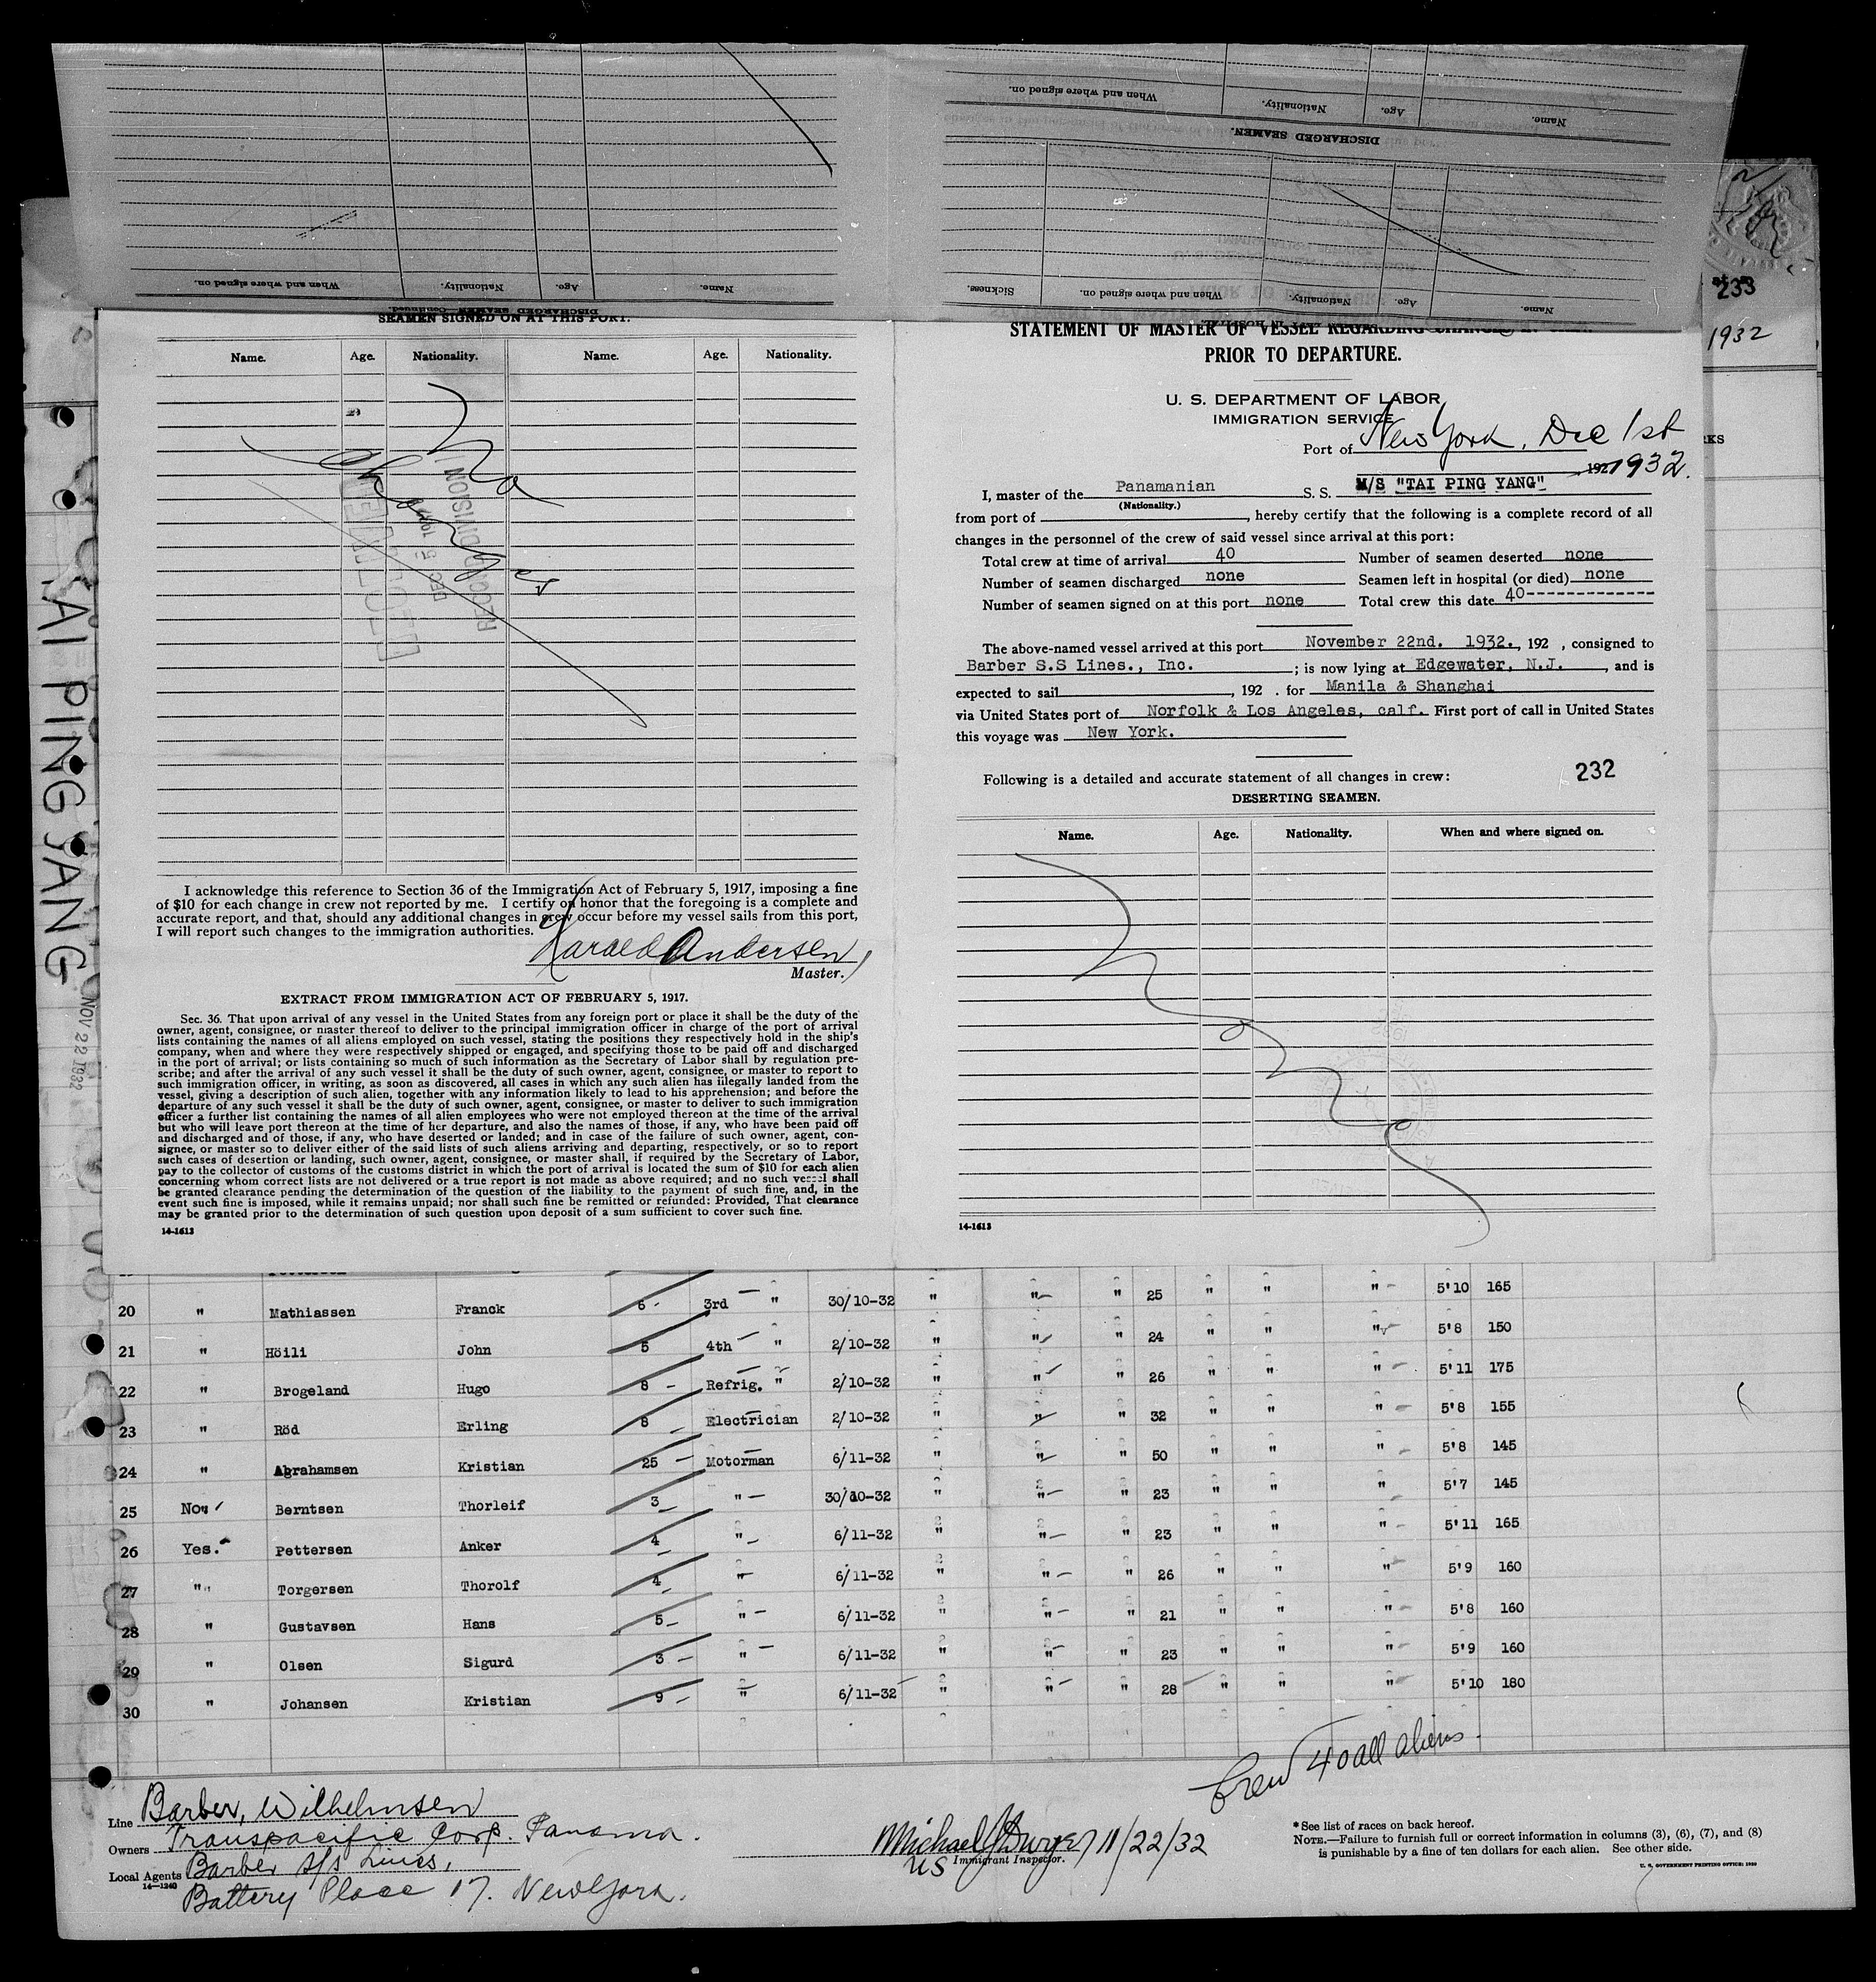 When and where signed on.
Nationality.
Age.
Name.
When and where signed on.
Nationality.
Age.
Name.
DISCHARGED SEAMEN.
Sickness.
When and where signed on.
Nationality.
Age.
Name.
233
1932
TAI PING YANG
NOV 22 1932
SEAMEN SIGNED ON AT THIS PORT.
Name. Age. Nationality. Name. Age. Nationality.
No
Changes
RECORD DIVISION
DEC 5 1932
I acknowledge this reference to Section 36 of the Immigration Act of February 5, 1917, imposing a fine
of $10 for each change in crew not reported by me. I certify on honor that the foregoing is a complete and
accurate report, and that, should any additional changes in crew occur before my vessel sails from this port,
I will report such changes to the immigration authorities.
Harald Andersen
Master.
EXTRACT FROM IMMIGRATION ACT OF FEBRUARY 5, 1917.
Sec. 36. That upon arrival of any vessel in the United States from any foreign port or place it shall be the duty of the
owner, agent, consignee, or master thereof to deliver to the principal immigration officer in charge of the port of arrival
lists containing the names of all aliens employed on such vessel, stating the positions they respectively hold in the ship's
company, when and where they were respectively shipped or engaged, and specifying those to be paid off and discharged
in the port of arrival; or lists containing so much of such information as the Secretary of Labor shall by regulation pre-
scribe; and after the arrival of any such vessel it shall be the duty of such owner, agent, consignee, or master to report to
such immigration officer, in writing, as soon as discovered, all cases in which any such alien has illegally landed from the
vessel, giving a description of such alien, together with any information likely to lead to his apprehension; and before the
departure of any such vessel it shall be the duty of such owner, agent, consignee, or master to deliver to such immigration
officer a further list containing the names of all alien employees who were not employed thereon at the time of the arrival
but who will leave port thereon at the time of her departure, and also the names of those, if any, who have been paid off
and discharged and of those, if any, who have deserted or landed; and in case of the failure of such owner, agent, con-
signee, or master so to deliver either of the said lists of such aliens arriving and departing, respectively, or so to report
such cases of desertion or landing, such owner, agent, consignee, or master shall, if required by the Secretary of Labor,
pay to the collector of customs of the customs district in which the port of arrival is located the sum of $10 for each alien
concerning whom correct lists are not delivered or a true report is not made as above required; and no such vessel shall
be granted clearance pending the determination of the question of the liability to the payment of such fine, and, in the
event such fine is imposed, while it remains unpaid; nor shall such fine be remitted or refunded: Provided, That clearance
may be granted prior to the determination of such question upon deposit of a sum sufficient to cover such fine.
14-1613
STATEMENT OF MASTER OF VESSEL REGARDING CHANGES IN
PRIOR TO DEPARTURE.
U. S. DEPARTMENT OF LABOR
IMMIGRATION SERVICE
Port of New York, Dec 1st
192 1932.
I, master of the Panamanian S. S. M/S "TAI PING YANG"
(Nationality.)
from port of , hereby certify that the following is a complete record of all
changes in the personnel of the crew of said vessel since arrival at this port:
Total crew at time of arrival 40 Number of seamen deserted none
Number of seamen discharged none Seamen left in hospital (or died) none
Number of seamen signed on at this port none Total crew this date 40
The above-named vessel arrived at this port November 22nd. 1932., 192 , consigned to
Barber S.S Lines., Inc. ; is now lying at Edgewater, N.J. , and is
expected to sail , 192 . for Manila & Shanghai
via United States port of Norfolk & Los Angeles, calf. First port of call in United States
this voyage was New York.
Following is a detailed and accurate statement of all changes in crew: 232
DESERTING SEAMEN.
Name. Age. Nationality. When and where signed on.
14-1613
20 " Mathiassen Franck 6 - 3rd " 30/10-32 " " " 25 " " " 5'10 165
21 " Höili John 5 4th " 2/10-32 " " " 24 " " " 5'8 150
22 " Brogeland Hugo 8 - Refrig. " 2/10-32 " " " 26 " " " 5'11 175
23 " Röd Erling 8 Electrician 2/10-32 " " " 32 " " " 5'8 155
24 " Abrahamsen Kristian 25 - Motorman 6/11-32 " " " 50 " " " 5'8 145
25 No Berntsen Thorleif 3 " 30/10-32 " " " 23 " " " 5'7 145
26 Yes. Pettersen Anker 4 " 6/11-32 " " " 23 " " " 5'11 165
27 " Torgersen Thorolf 4 " 6/11-32 " " " 26 " " " 5'9 160
28 " Gustavsen Hans 5 " 6/11-32 " " " 21 " " " 5'8 160
29 " Olsen Sigurd 3 " 6/11-32 " " " 23 " " " 5'9 160
30 " Johansen Kristian 9 " 6/11-32 " " " 28 " " " 5'10 180
Crew 40 all aliens.
Line Barber, Wilhelmsen
Owners Transpacific Corp. Panama.
Local Agents Barber s/s Lines,
14-1240
Battery Place 17. New York.
Michael 11/22/32
US Immigrant Inspector.
*See list of races on back hereof.
NOTE.—Failure to furnish full or correct information in columns (3), (6), (7), and (8)
is punishable by a fine of ten dollars for each alien. See other side.